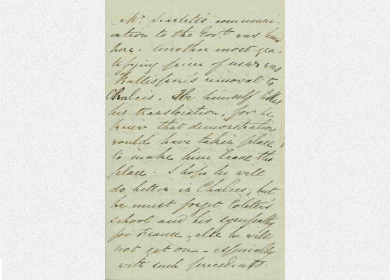 Mr. Scarlett's communi-
cation to the Govt. was
here. Another most gra-
tifying piece of news was
removal to
Chalcis. He himself
his translocation, for he
knew that demonstrations
would have taken place
to make him leave the
place. I hope he will
do better in Chalcis, but
he must forget Colettis
school and his sympathy
for France, else he will
not get on - especially
with such precedents